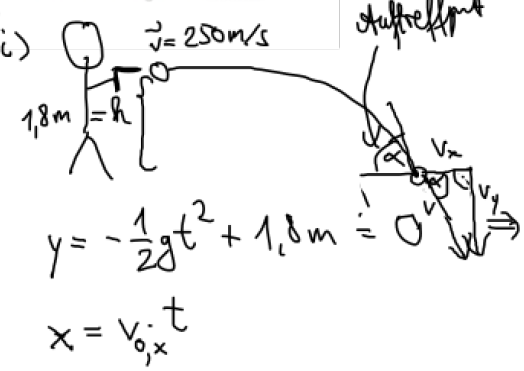 i) v⃗ = 250 m/s
Auftreffpunkt
1,8m = h
α
v_x
α
v
v_y
y = -1/2 gt² + 1,8m = 0 ⇒
x = v_{0,x} t